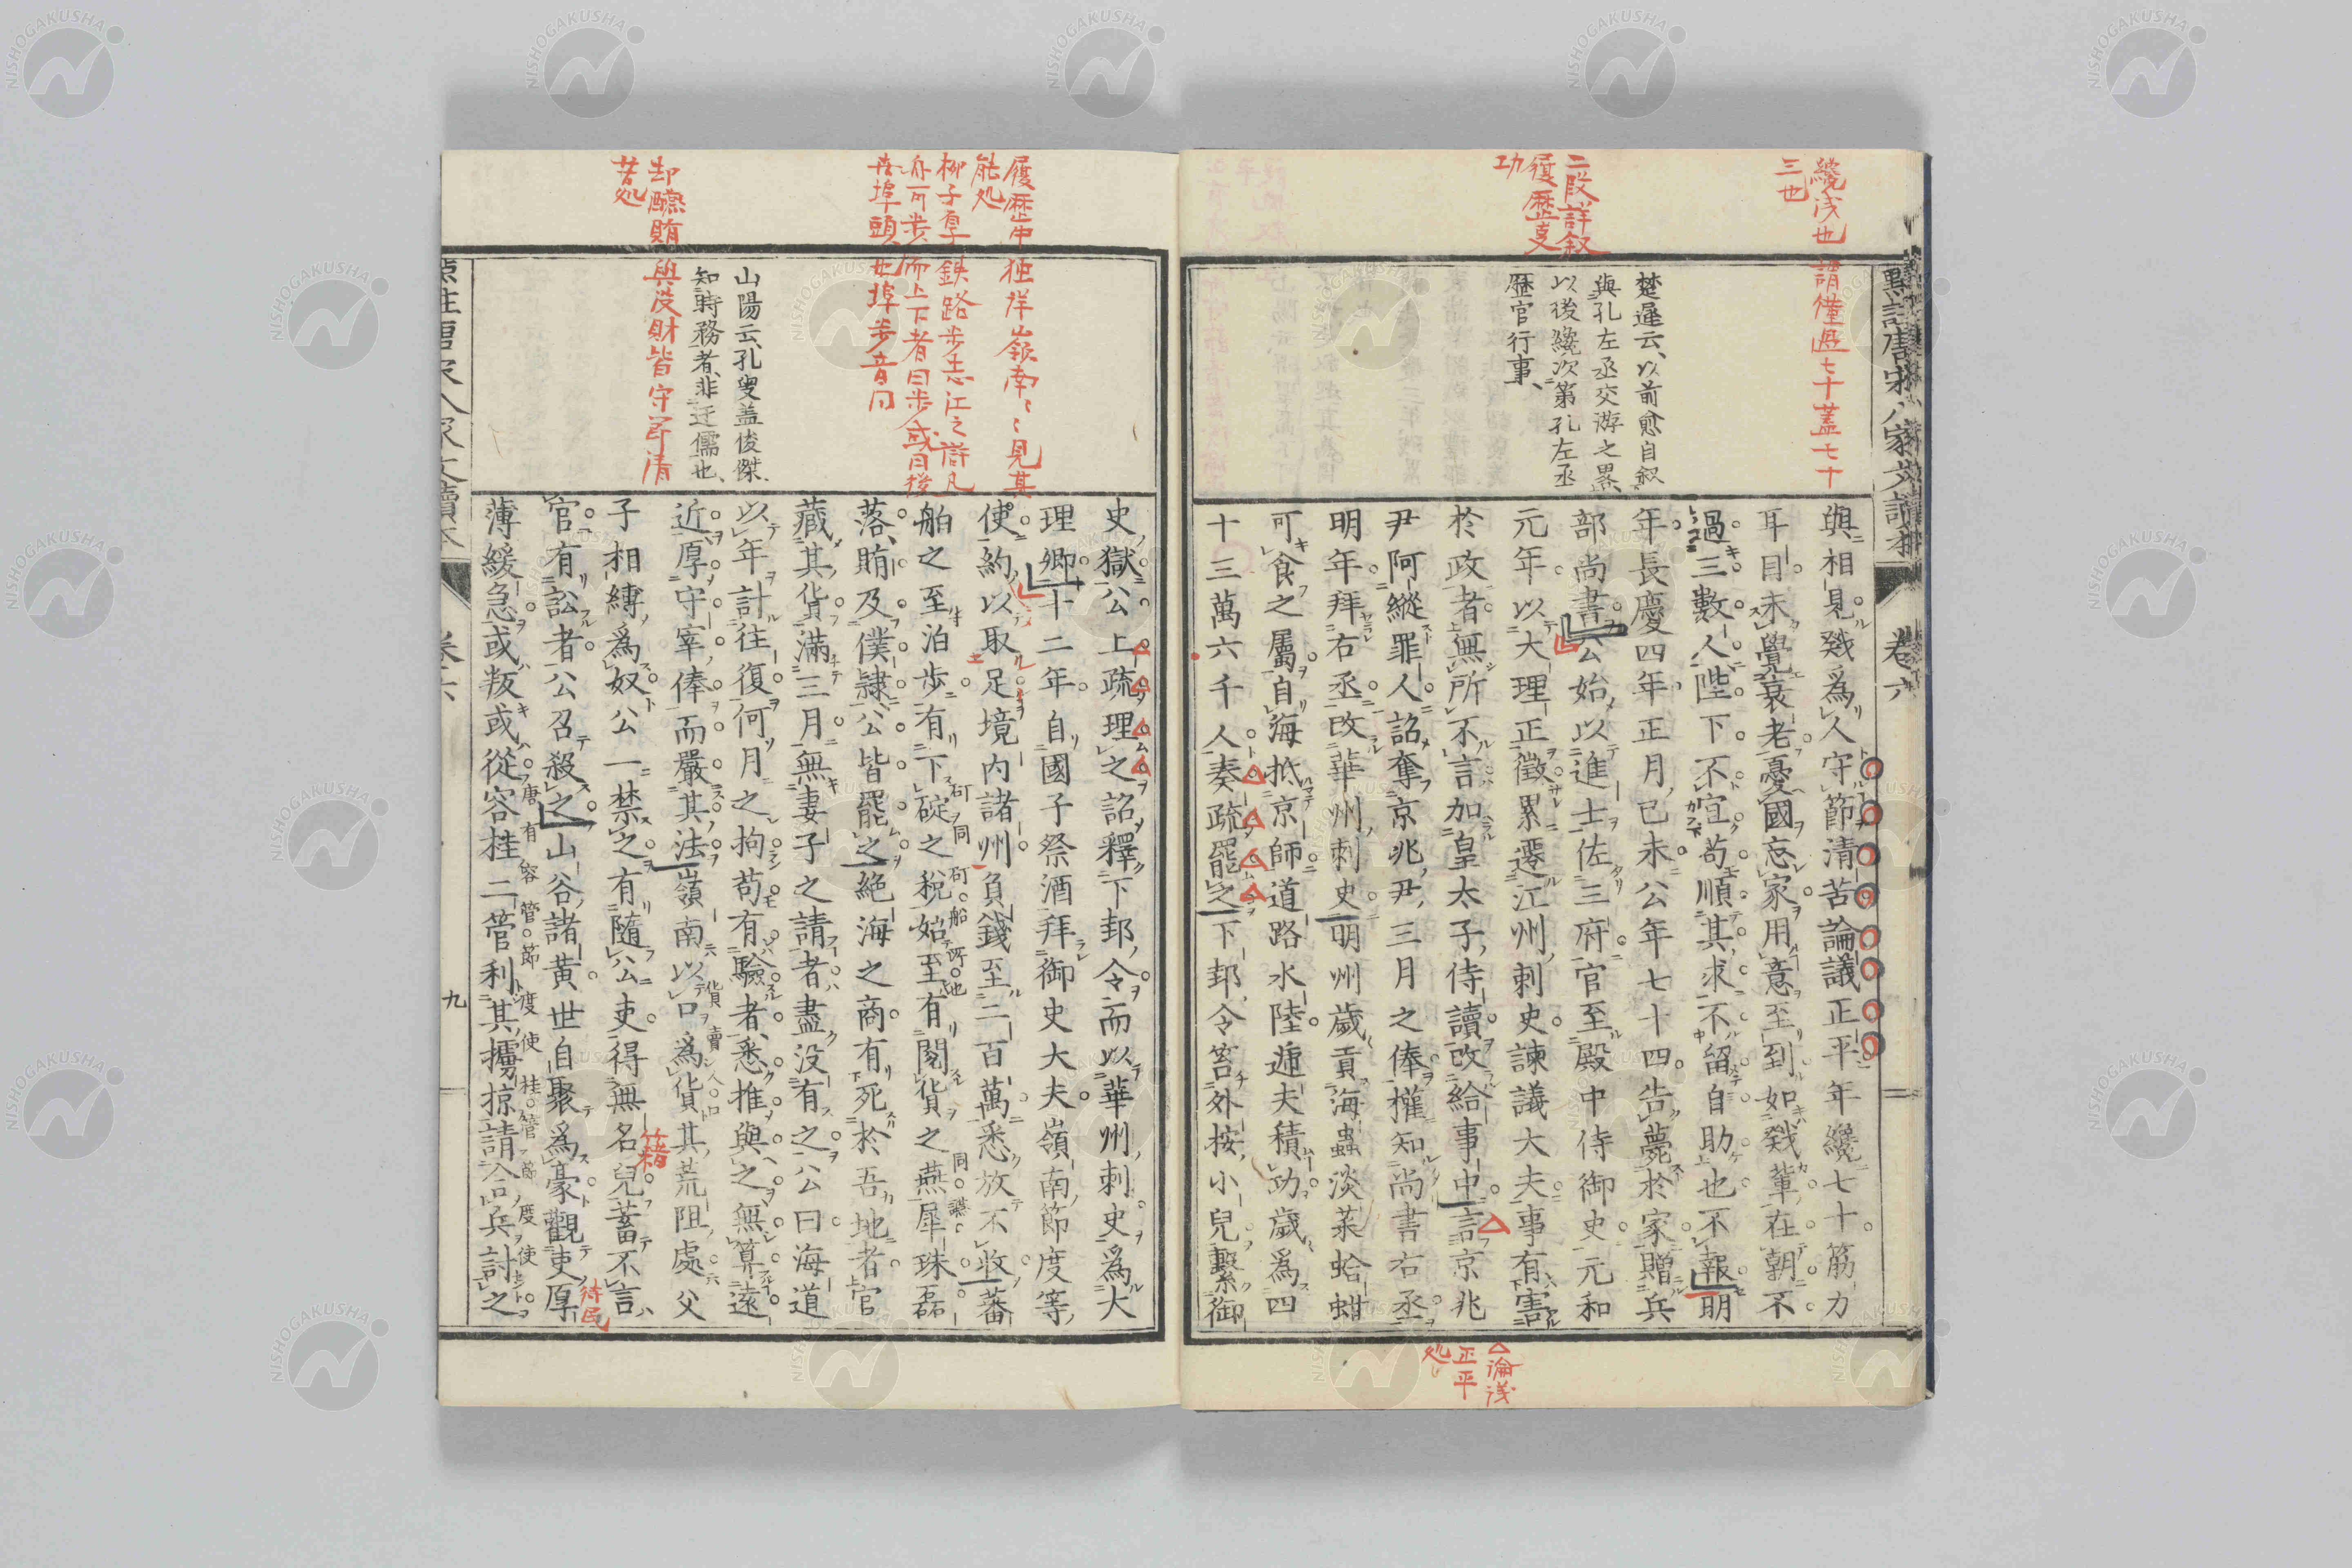 纔浅也
三也
謂僅過七十蓋七十
二段詳叙
履歴支
功
楚遲云、以前愈自叙
與孔左丞交游之畧、
以後纔次第孔左丞
歷官行事、
卷六
與相見、戣爲人守節清苦論議正平年纔七十筋力
耳目未覺衰老憂國忘家用意至到如戣輩在朝不
過三數人陛下不宜苟順其求不留自助也不報明
年長慶四年正月己未公年七十四告薨於家贈兵
部尚書公始以進士佐三府官至殿中侍御史元和
元年以大理正徵累遷江州刺史諫議大夫事有害
於政者無所不言加皇太子侍讀改給事中言京兆
尹阿縱罪人詔奪京兆尹三月之俸權知尚書右丞
明年拜右丞改華州刺史明州歲貢海蟲淡菜蛤蚶
可食之屬自海抵京師道路水陸遞夫積功歲爲四
十三萬六千人奏疏罷之下邽令笞外按小兒繫御
論浅
正平
処
履歴中独詳嶺南、見其
能処
山陽云、孔叟蓋俊傑
知時務者、非迂儒也、
却醵賄與没財皆守節清
苦処
史獄公上疏理之詔釋下邽令而以華州刺史爲大
理卿十二年自國子祭酒拜御史大夫嶺南節度等
使約以取足境内諸州負錢至二百萬悉放不收蕃
舶之至泊步有下碇之稅始至有閱貨之燕犀珠磊
落賄及僕隷公皆罷之絕海之商有死於吾地者官
藏其貨滿三月無妻子之請者盡没有之公曰海道
以年計往復何月之拘苟有驗者悉推與之無算遠
近厚守宰俸而嚴其法嶺南以口爲貨其荒阻處父
子相縛爲奴公一禁之有隨公吏得無名兒蓄不言
官有訟者公召殺之山谷諸黃世自聚爲豪觀吏厚
薄緩急或叛或從容桂二管利其擄掠請合兵討之
九
籍
待民